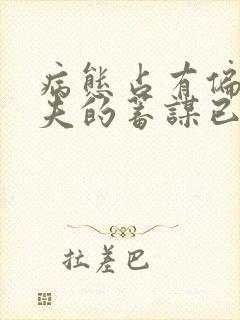 病態占有偏
夫的蓄謀已
拉差巴